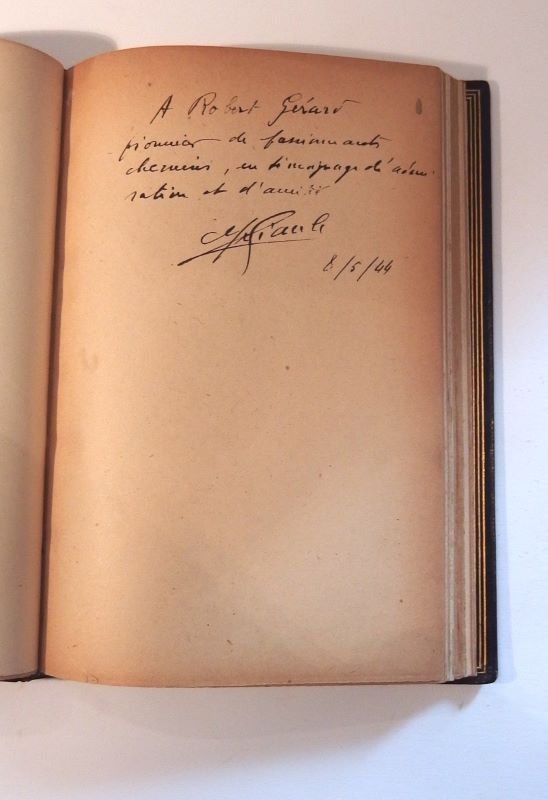 A Robert Gérard
pionnier de passionnants
chemins, en témoignage d'admi-
ration et d'amitié
8/5/44